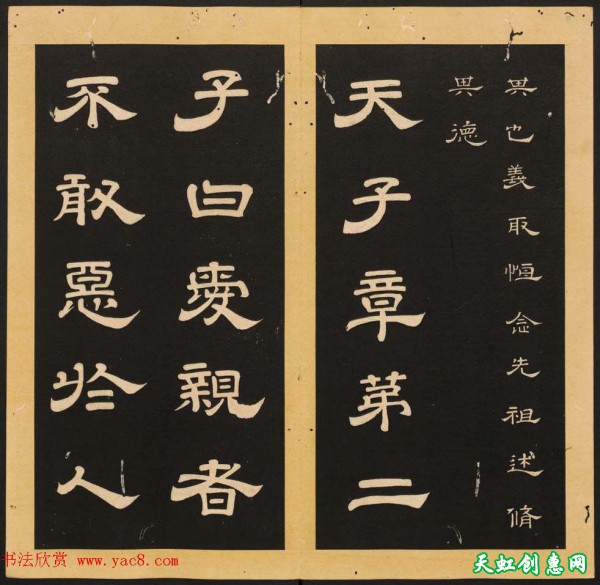 其也義取恒念先祖述脩
其德
天子章苐二
子曰愛親者
不敢惡於人
书法欣赏 www.yac8.com
天虹创惠网